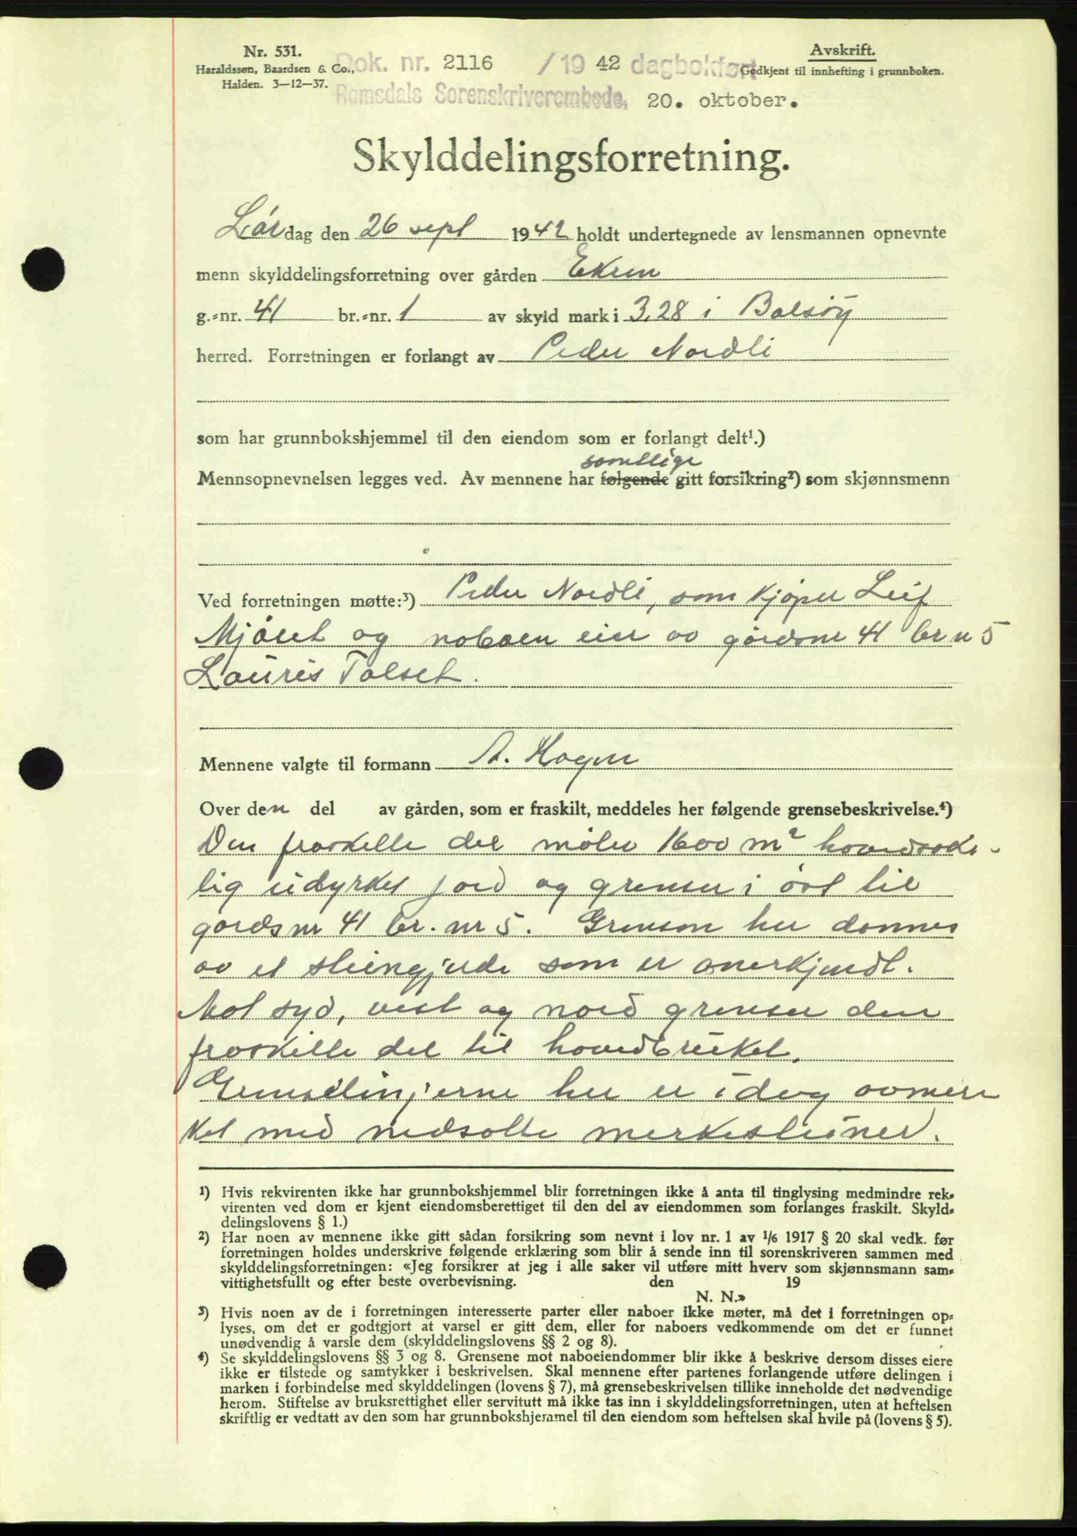 Nr. 531.
Haraldssøn, Baardsen & Co.,
Halden. 3—12—37.
Dok. nr. 2116 /19 42 dagbokført
Romsdals Sorenskriverembede, 20. oktober.
Avskrift.
Godkjent til innhefting i grunnboken.
Skylddelingsforretning.
Lørdag den 26 sept 1942 holdt undertegnede av lensmannen opnevnte
menn skylddelingsforretning over gården Ekren
g.-nr. 41 br.-nr. 1 av skyld mark i 3,28 i Bolsøy
herred. Forretningen er forlangt av Peder Nordli
som har grunnbokshjemmel til den eiendom som er forlangt delt¹.)
samtlige
Mennsopnevnelsen legges ved. Av mennene har følgende gitt forsikring²) som skjønnsmenn
Ved forretningen møtte:³) Peder Nordli, som kjøper Leif
Mjåset og naboen eier av gårdsnr 41 br n 5
Lauris Talset.
Mennene valgte til formann A. Hagen
Over den del av gården, som er fraskilt, meddeles her følgende grensebeskrivelse.⁴)
Den fraskilte del måler 1600 m² hovedsake-
lig udyrket jord og grenser i øst til
gårdsnr 41 br. nr 5. Grensen her dannes
av et steingjerde som er anerkjendt.
Mot syd, vest og nord grenser den
fraskilte del til hovedbruket.
Grenselinjerne her er idag avmer-
ket med nedsatte merkesteiner.
¹) Hvis rekvirenten ikke har grunnbokshjemmel blir forretningen ikke å anta til tinglysing medmindre rek-
virenten ved dom er kjent eiendomsberettiget til den del av eiendommen som forlanges fraskilt. Skyld-
delingslovens § 1.)
²) Har noen av mennene ikke gitt sådan forsikring som nevnt i lov nr. 1 av 1/6 1917 § 20 skal vedk. før
forretningen holdes underskrive følgende erklæring som blir å sende inn til sorenskriveren sammen med
skylddelingsforretningen: «Jeg forsikrer at jeg i alle saker vil utføre mitt hverv som skjønnsmann sam-
vittighetsfullt og efter beste overbevisning. den 19
N. N.»
³) Hvis noen av de i forretningen interesserte parter eller naboer ikke møter, må det i forretningen op-
lyses, om det er godtgjort at varsel er gitt dem, eller for naboers vedkommende om det er funnet
unødvendig å varsle dem (skylddelingslovens §§ 2 og 8).
⁴) Se skylddelingslovens §§ 3 og 8. Grensene mot naboeiendommer blir ikke å beskrive dersom disses eiere
ikke er tilstede og samtykker i beskrivelsen. Skal mennene efter partenes forlangende utføre delingen i
marken i forbindelse med skylddelingen (lovens § 7), må grensebeskrivelsen tillike inneholde det nødvendige
herom. Stiftelse av bruksrettighet eller servitutt må ikke tas inn i skylddelingsforretningen, uten at heftelsen
skriftlig er vedtatt av den som har grunnbokshjemmel til den eiendom som heftelsen skal hvile på (lovens § 5).